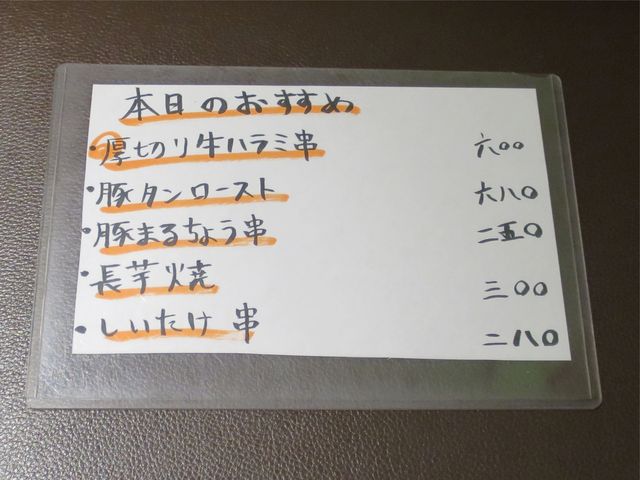 本日のおすすめ
・厚切り牛ハラミ串 六〇〇
・豚タンロースト 六八〇
・豚まるちょう串 二五〇
・長芋焼 三〇〇
・しいたけ串 二八〇